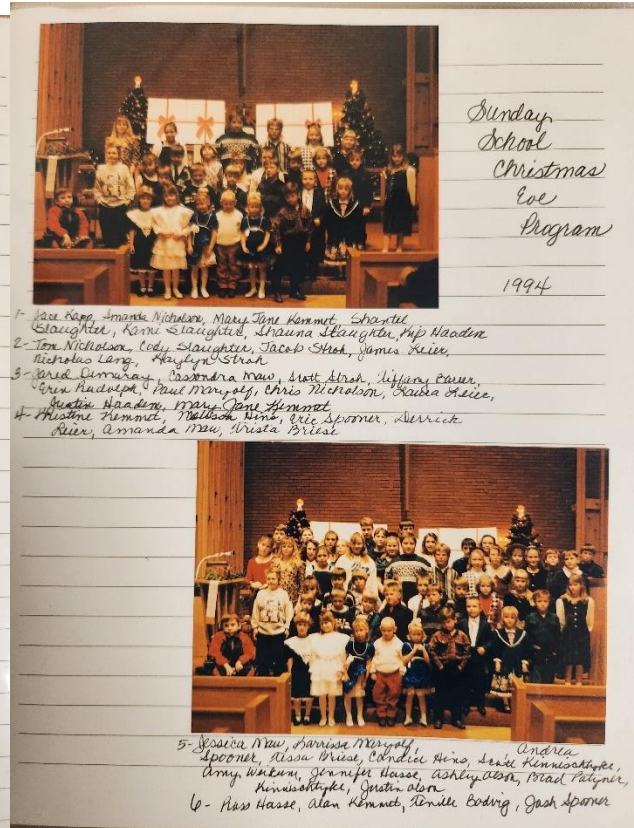 Sunday
School
Christmas
Eve
Program
1994
1- Jace Kapp, Amanda Nicholson, Mary Jane Kemmet, Shantel
Slaughter, Kami Slaughter, Shauna Slaughter, Kip Haaden
2- Tom Nicholson, Cody Slaughter, Jacob Stroh, James Reier,
Nicholas Lang, Stroh
3- Jared Cassondra Maw, Scott Stroh, Tiffany
Erin Rudolph, Paul Marzolf, Chris Nicholson, Laura Reier,
Justin Haaden, Mary Jane Kemmet
4- Kristine Kemmet, Hins, Eric Spooner, Derrick
Reier, Amanda Maw, Trista Briese
5- Jessica Maw, Larrissa Marzolf, Andrea
Spooner, Tessa Briese, Candice Hins, Scott
Amy Weikum, Jennifer Hasse, Ashley Olson, Brad
Justin Olson
6- Russ Hasse, Alan Kemmet, Tenille Bodvig, Josh Spooner